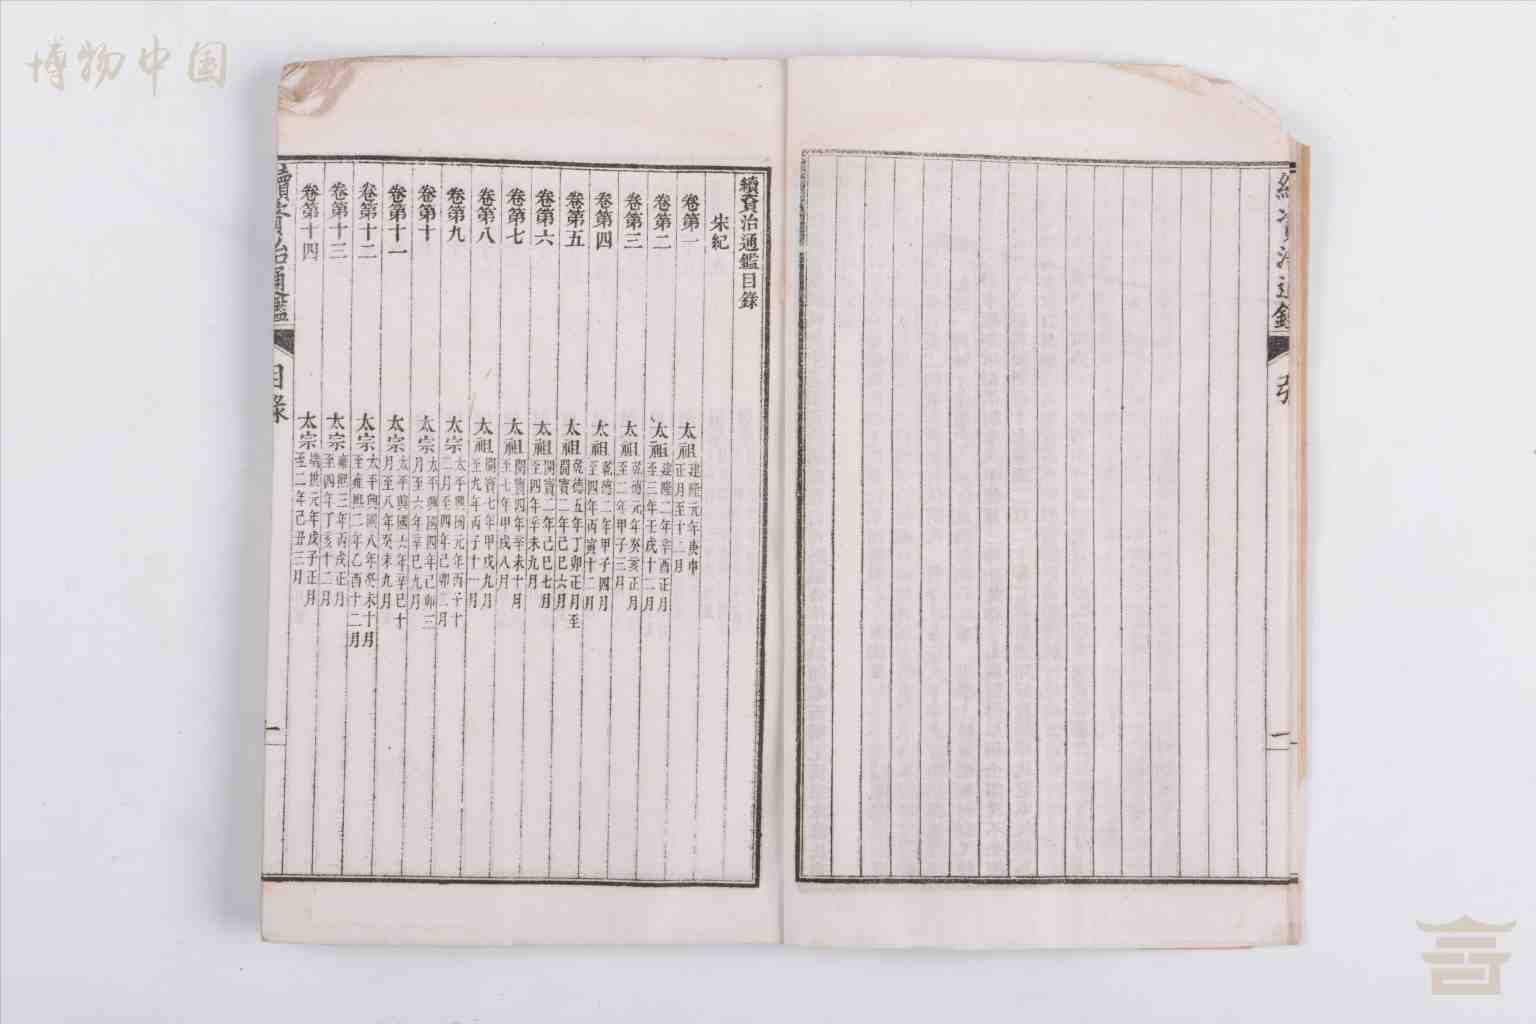 博物中国
續資治通鑑目錄
宋紀
卷第一 太祖 建隆元年庚申正月至十二月
卷第二 太祖 建隆二年辛酉正月至三年壬戌十二月
卷第三 太祖 乾德元年癸亥正月至二年甲子三月
卷第四 太祖 乾德二年甲子四月至四年丙寅十二月
卷第五 太祖 乾德五年丁卯正月至開寶二年己巳六月
卷第六 太祖 開寶二年己巳七月至四年辛未九月
卷第七 太祖 開寶四年辛未十月至七年甲戌八月
卷第八 太祖 開寶七年甲戌九月至九年丙子十一月
卷第九 太宗 太平興國元年丙子十二月至四年己卯二月
卷第十 太宗 太平興國四年己卯三月至六年辛巳九月
卷第十一 太宗 太平興國六年辛巳十月至八年癸未九月
卷第十二 太宗 太平興國八年癸未十月至雍熙二年乙酉十二月
卷第十三 太宗 雍熙三年丙戌正月至四年丁亥十二月
卷第十四 太宗 端拱元年戊子正月至二年己丑三月
續資治通鑑 目錄 一